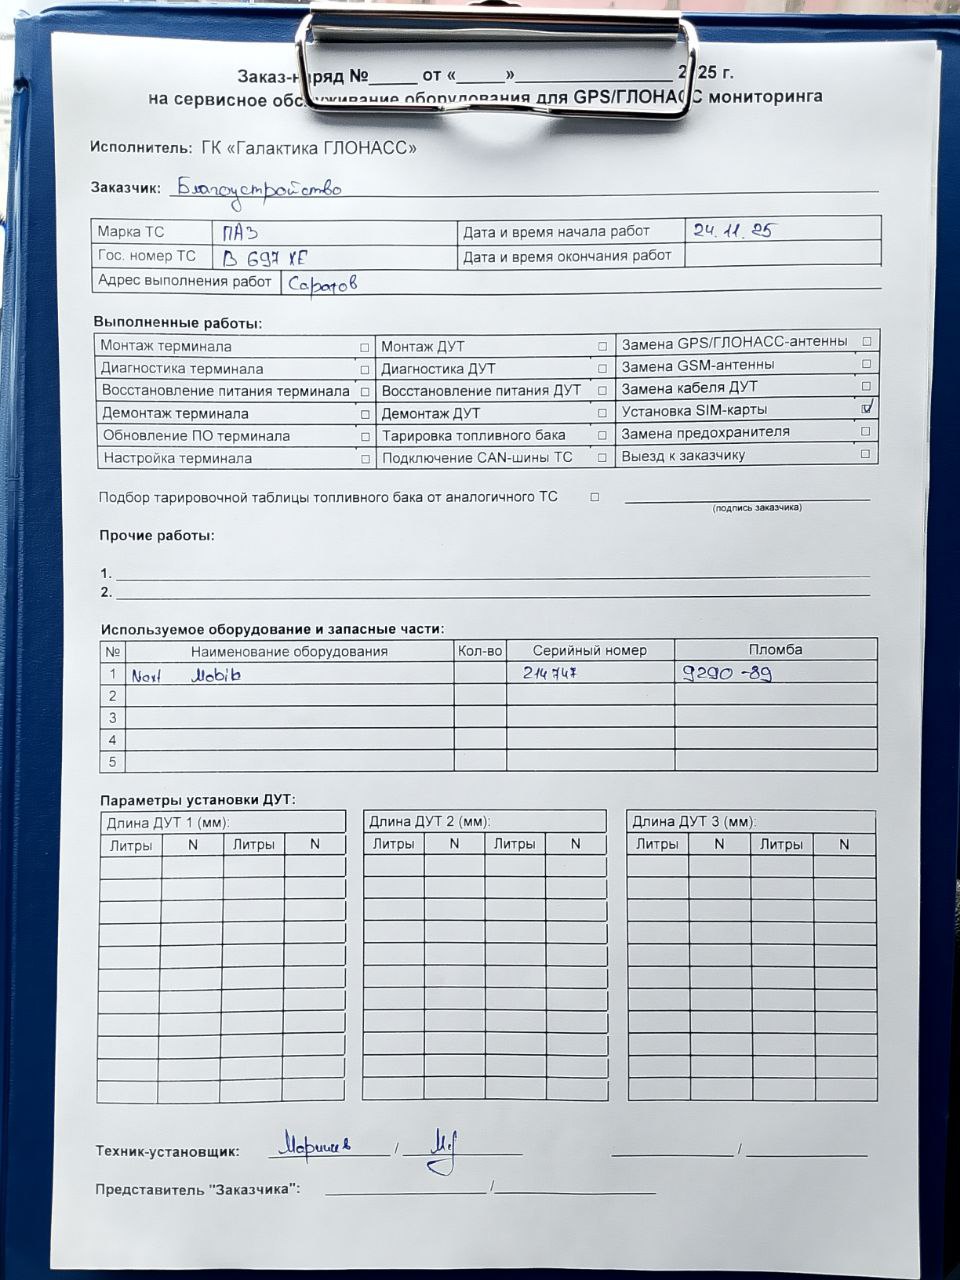 Заказ-наряд №______ от «_____»____________________ 2025 г.
на сервисное обслуживание оборудования для GPS/ГЛОНАСС мониторинга
Исполнитель: ГК «Галактика ГЛОНАСС»
Заказчик: Благоустройство
Марка ТС ПАЗ Дата и время начала работ 24.11.25
Гос. номер ТС В 697 ХЕ Дата и время окончания работ
Адрес выполнения работ Саратов
Выполненные работы:
Монтаж терминала ☐ Монтаж ДУТ ☐ Замена GPS/ГЛОНАСС-антенны ☐
Диагностика терминала ☐ Диагностика ДУТ ☐ Замена GSM-антенны ☐
Восстановление питания терминала ☐ Восстановление питания ДУТ ☐ Замена кабеля ДУТ ☐
Демонтаж терминала ☐ Демонтаж ДУТ ☐ Установка SIM-карты ☑
Обновление ПО терминала ☐ Тарировка топливного бака ☐ Замена предохранителя ☐
Настройка терминала ☐ Подключение CAN-шины ТС ☐ Выезд к заказчику ☐
Подбор тарировочной таблицы топливного бака от аналогичного ТС ☐
(подпись заказчика)
Прочие работы:
1.
2.
Используемое оборудование и запасные части:
№ Наименование оборудования Кол-во Серийный номер Пломба
1 214747 9290-89
2
3
4
5
Параметры установки ДУТ:
Длина ДУТ 1 (мм): Длина ДУТ 2 (мм): Длина ДУТ 3 (мм):
Литры N Литры N Литры N Литры N Литры N Литры N
Техник-установщик: / /
Представитель "Заказчика": /